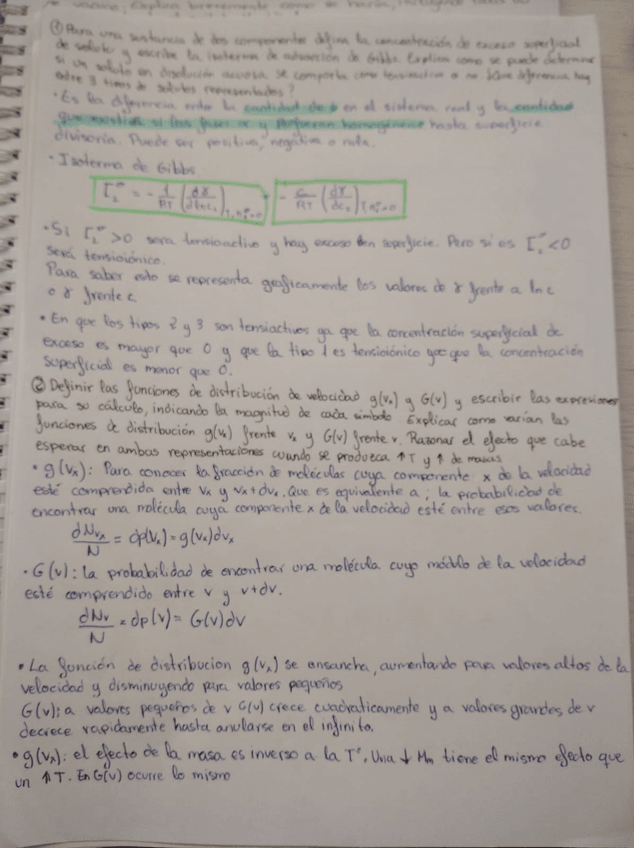 vacuno, Explica brevemente como se haría,
① Para una sustancia de dos componentes defina la concentración de exceso superficial
de soluto y escribe la isoterma de adsorción de Gibbs. Explica como se puede determinar
si un soluto en disolución acuosa se comporta como tensioactivo o no ¿Qué diferencia hay
entre 3 tipos de solutos representados?
· Es la diferencia entre la cantidad de i en el sistema real y la cantidad
que existiría si las fases α y β fueran homogéneas hasta superficie
divisoria. Puede ser positiva, negativa o nula.
· Isoterma de Gibbs
Γ₂^σ = - 1/RT (dγ/dlnc₂)_T,n₁^σ=0 - c₂/RT (dγ/dc₂)_T,n₁^σ=0
· Si Γ₂^σ > 0 sera tensioactivo y hay exceso en superficie. Pero si es Γ₂^σ < 0
será tensioiónico.
Para saber esto se representa graficamente los valores de γ frente a ln c
o γ frente c.
· En que los tipos 2 y 3 son tensiactivos ya que la concentración superficial de
exceso es mayor que 0 y que la tipo 1 es tensioiónico ya que la concentración
superficial es menor que 0.
② Definir las funciones de distribución de velocidad g(vₓ) y G(v) y escribir las expresiones
para su cálculo, indicando la magnitud de cada simbolo. Explicar como varían las
funciones de distribución g(vₓ) frente vₓ y G(v) frente v. Razonar el efecto que cabe
esperar en ambas representaciones cuando se produzca ↑T y ↑ de masas
· g(vₓ): Para conocer la fracción de moléculas cuya componente x de la velocidad
esté comprendida entre vₓ y vₓ+dvₓ. Que es equivalente a; la probabilidad de
encontrar una molécula cuya componente x de la velocidad esté entre esos valores.
dNvₓ/N = dp(vₓ) = g(vₓ)dvₓ
· G(v): la probabilidad de encontrar una molécula cuyo módulo de la velocidad
esté comprendido entre v y v+dv.
dNv/N = dp(v) = G(v)dv
· La función de distribucion g(vₓ) se ensancha, aumentando para valores altos de la
velocidad y disminuyendo para valores pequeños
G(v): a valores pequeños de v G(v) crece cuadraticamente y a valores grandes de v
decrece rapidamente hasta anularse en el infinito.
· g(vₓ): el efecto de la masa es inverso a la Tª. Una ↓ Mm tiene el mismo efecto que
un ↑T. En G(v) ocurre lo mismo